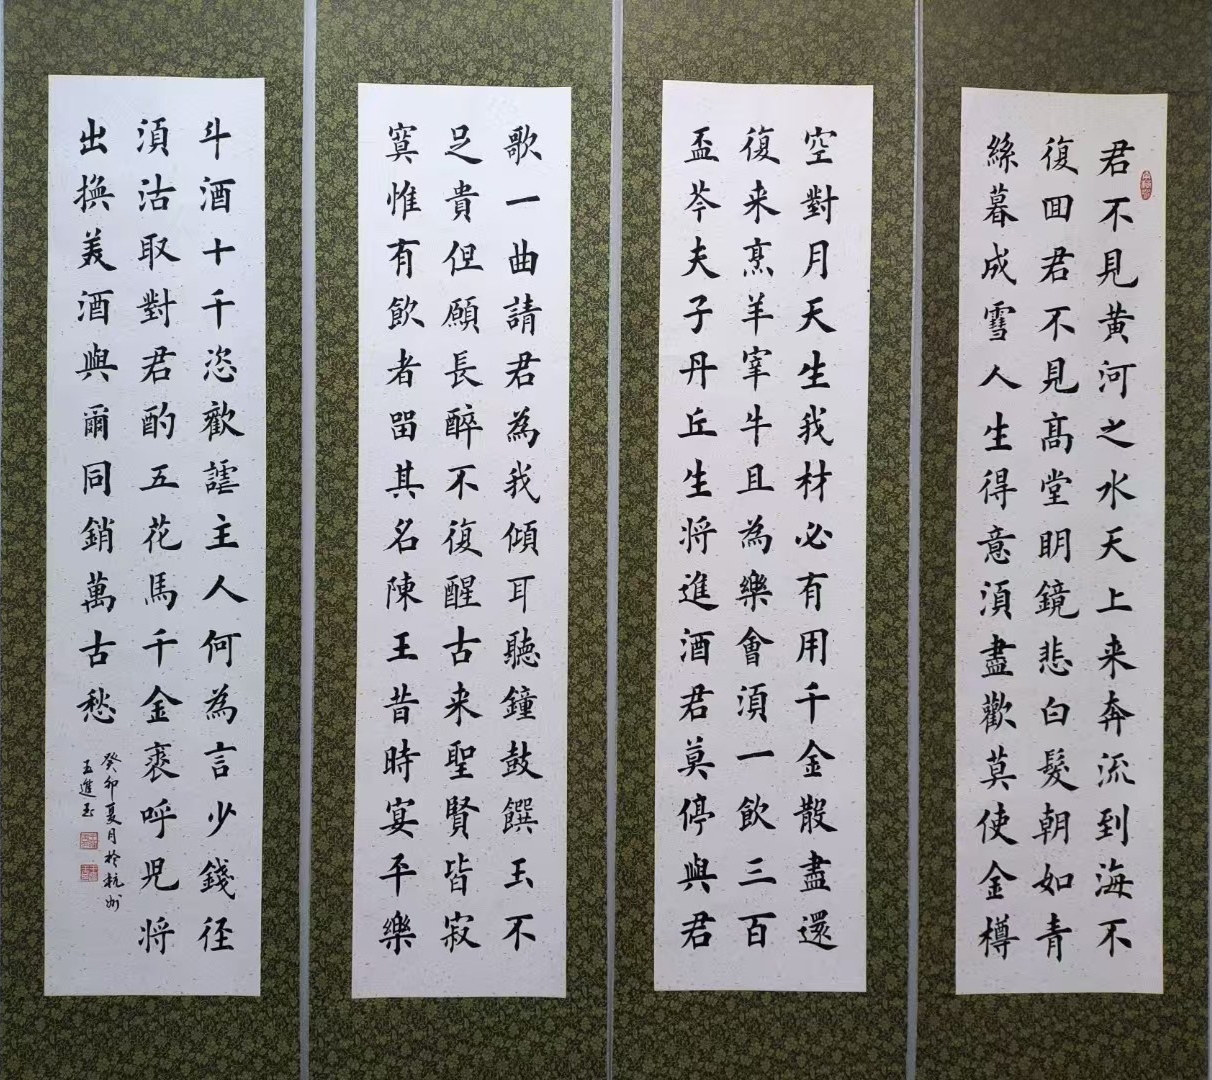 君不見黄河之水天上来奔流到海不
復囬君不見髙堂眀鏡悲白髮朝如青
絲暮成雪人生得意湏盡歡莫使金樽
空對月天生我材必有用千金散盡還
復来烹羊宰牛且為樂會湏一飲三百
盃岑夫子丹丘生将進酒君莫停與君
歌一曲請君為我傾耳聽鐘鼓饌玉不
足貴但願長醉不復醒古来聖賢皆寂
寞惟有飲者留其名陳王昔時宴平樂
斗酒十千恣歡謔主人何為言少錢径
湏沽取對君酌五花馬千金裘呼児将
出換美酒與爾同銷萬古愁
癸卯夏月於杭州
王進玉